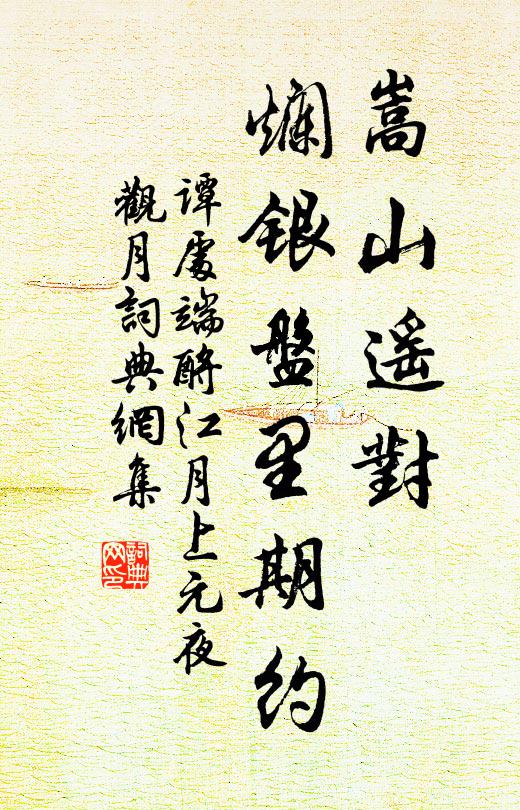 嵩山遥對
爛銀盤里期約
譚處端酹江月上元夜
觀月詞典網集
詞典
网印